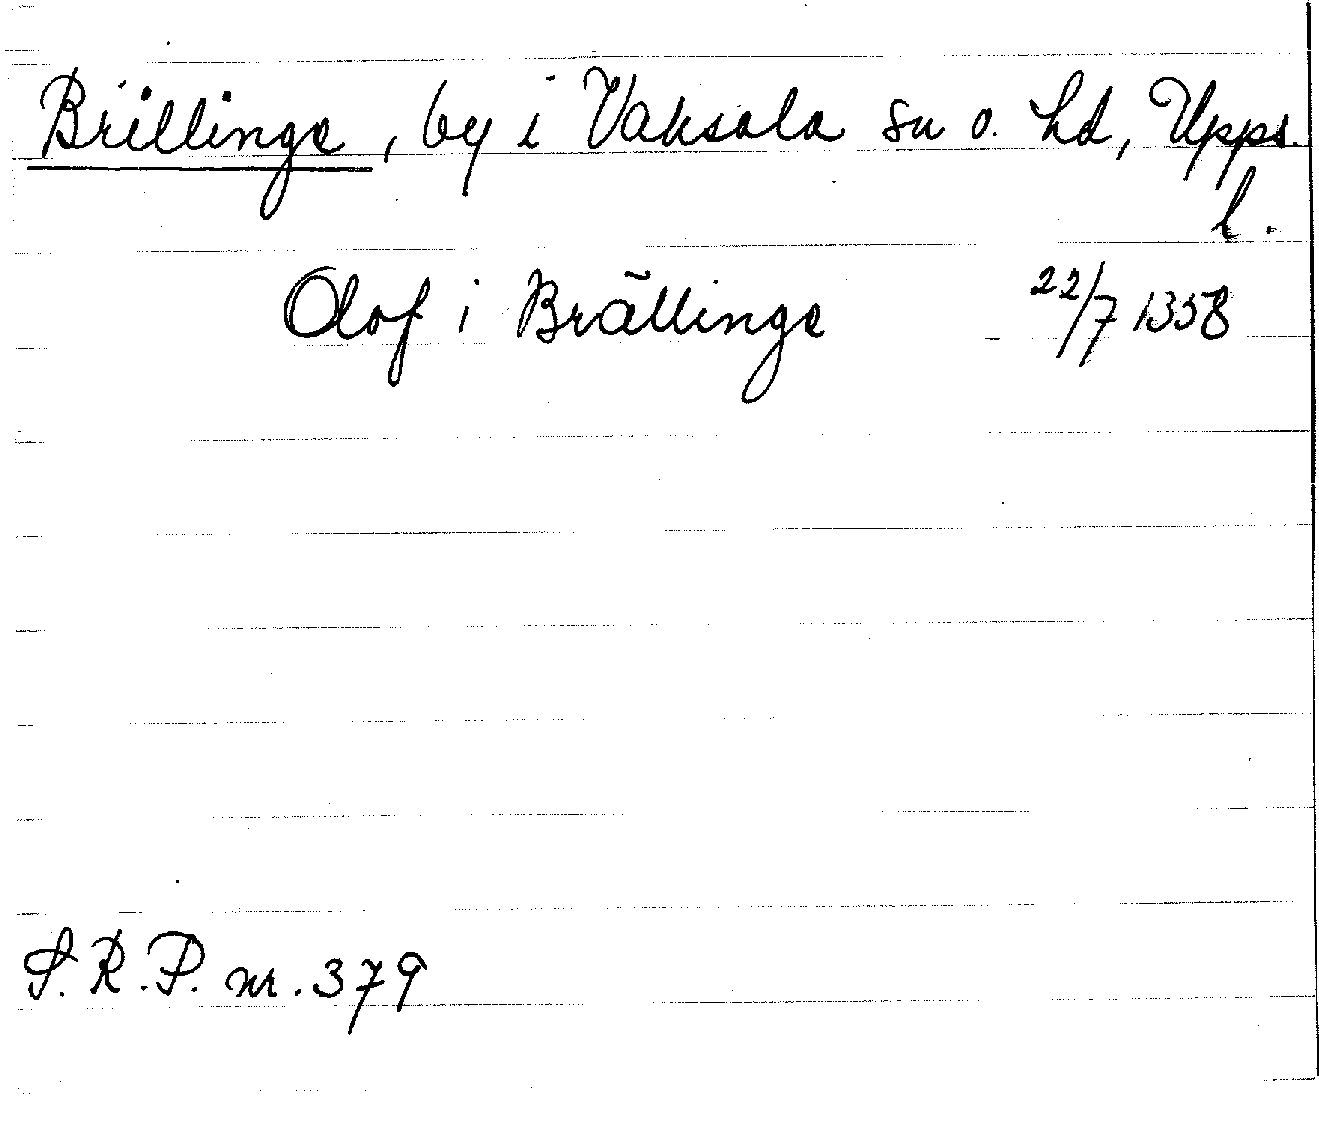 Brillinge, by i Vaksala sn o. hd, Upps.
l.
Olof i Brällinge 22/7 1358
S.R.P. nr. 379